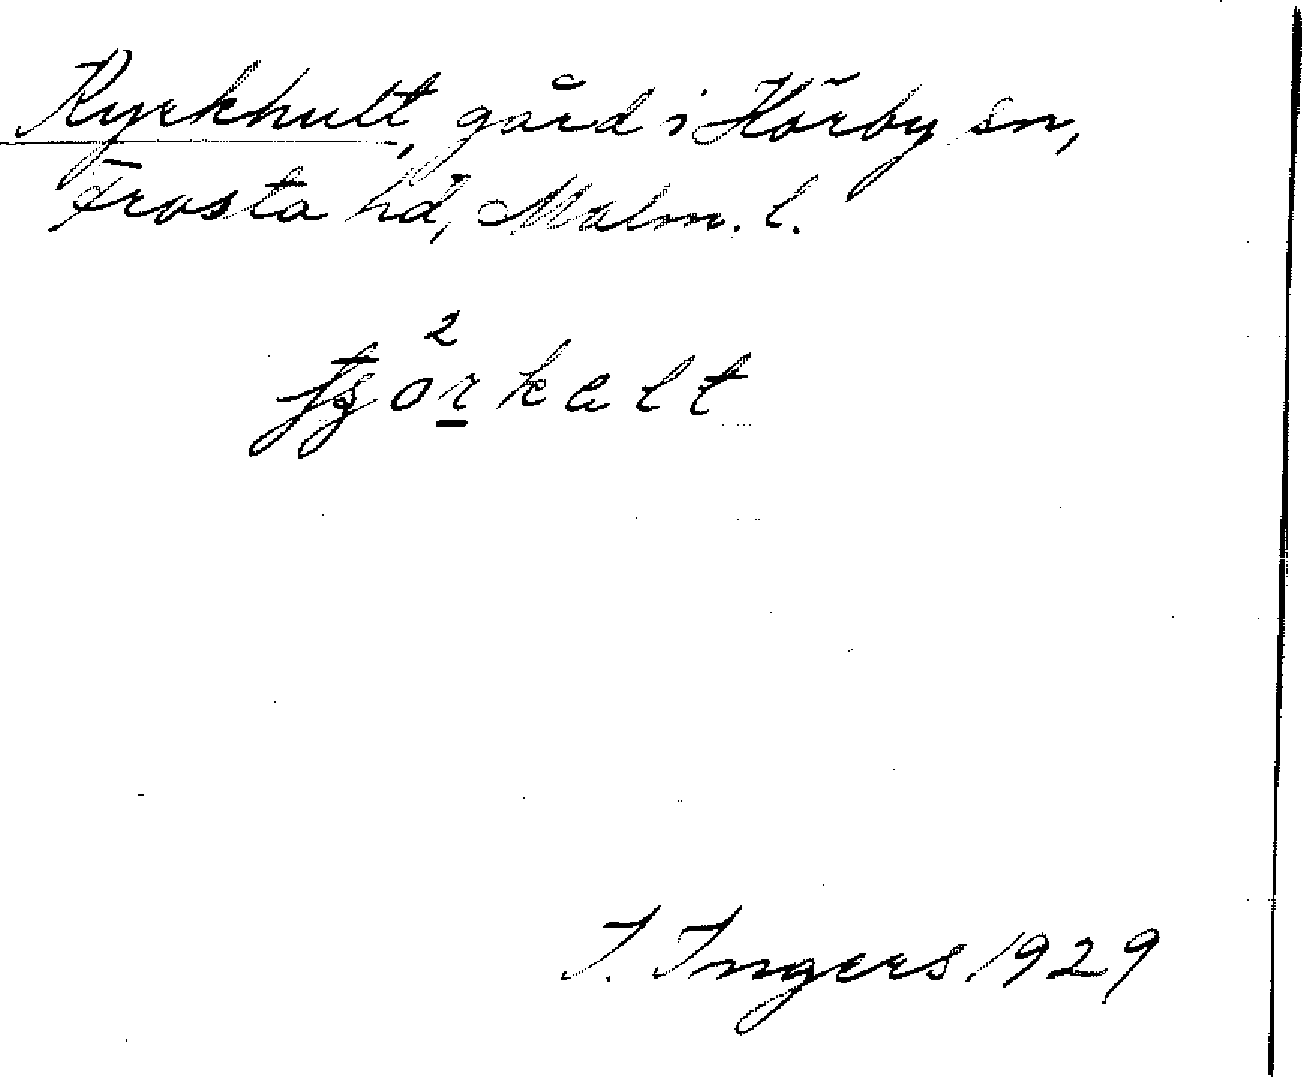 Kyrkhult, gård i Hörby sn,
Frosta hd, Malm. l.
2
I. Ingers 1929